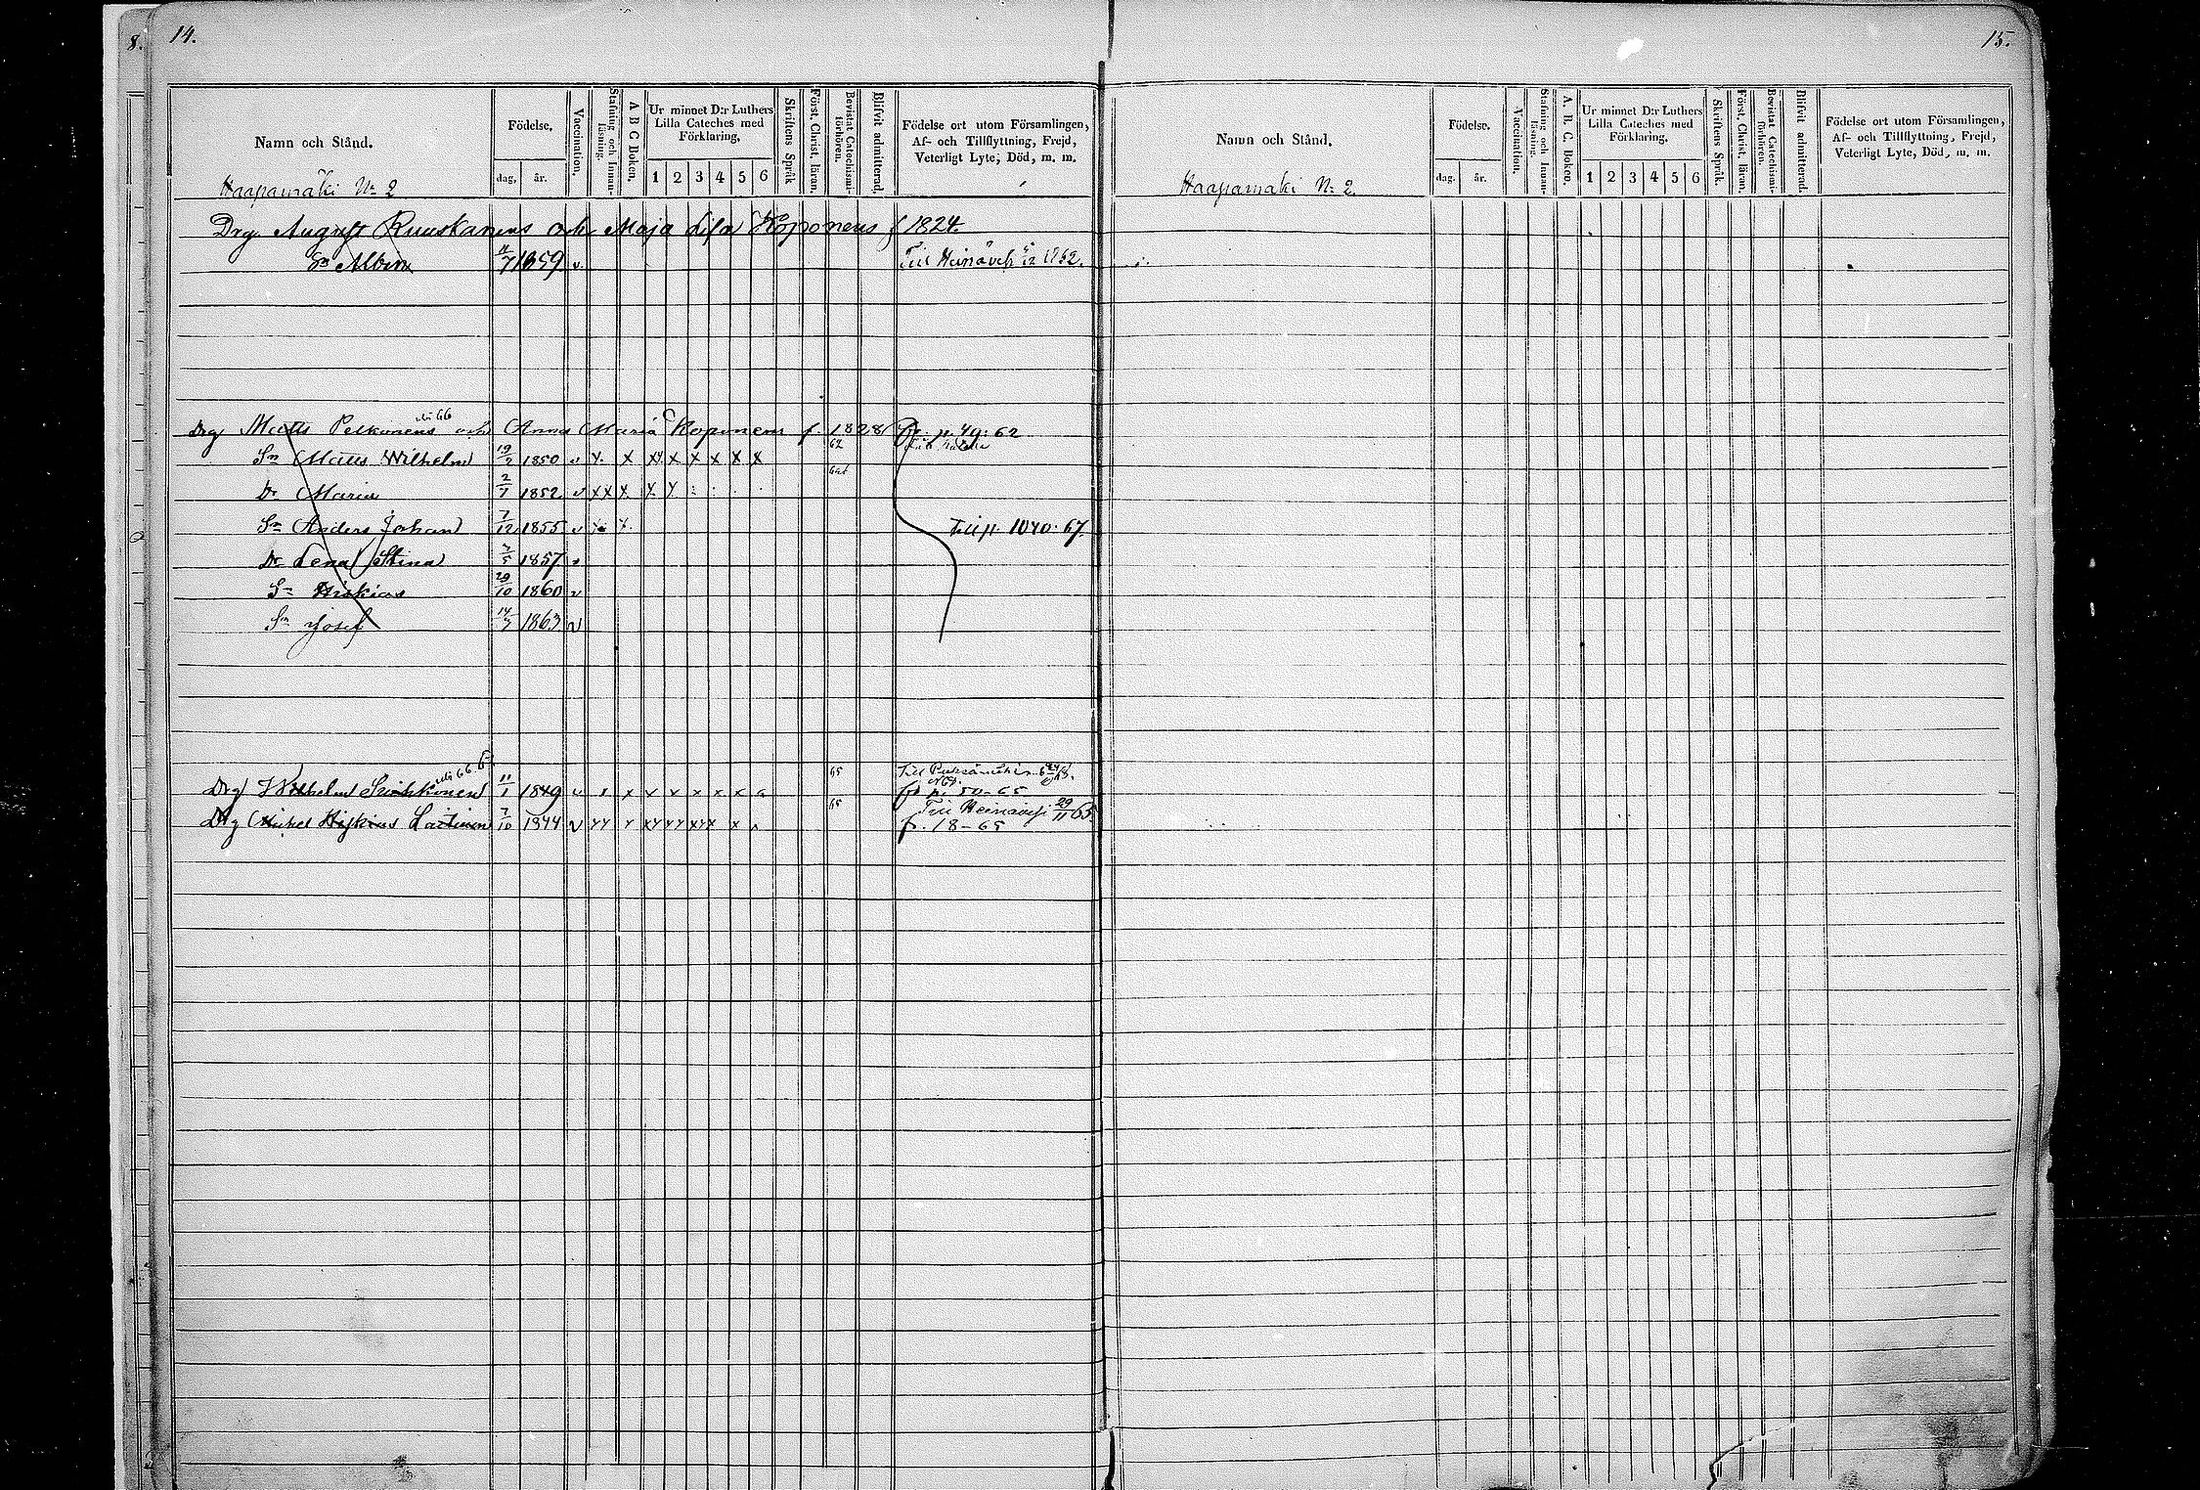 8.
14.
Namn och Stånd.
Födelse.
dag.
år.
Vaccination.
Stafning och Innan-
läsning.
A B C Boken.
Ur minnet D:r Luthers
Lilla Cateches med
Förklaring.
1 2 3 4 5 6
Skriftens Språk
Först. Christ. läran.
Bevistat Catechismi-
förhören.
Blifvit admitterad.
Födelse ort utom Församlingen,
Af- och Tillflyttning, Frejd,
Veterligt Lyte, Död, m. m.
Haapamäki N:o 2
Drg. August Ruuskanens och Maja Lisa Koponens f 1824.
Sn Albin 11/7 1859 v. Till Heinävesi 1862.
Drg Matts Pelkonens och Anna Maria Koponens f. 1828 fr. p. 49: 62
62
Sn Matts Wilhelm 19/2 1850 v x. x x x x x x x
Dr Maria 2/7 1852 v x x x x x
Sn Anders Johan 7/12 1855 v x x. Till p. 1040. 67.
Dr Lena Stina 1857 v
Sn Hiskias 29/10 1860 v
Sn Josef 14/7 1863 v
65
Drg Wilhelm 11/1 1849 v x x x x x x x fr p. 50-65
65 Till Heinävesi 29/11 65
Drg Mickel Hiskias Laitinen 7/10 1844 v f. 18-65
15.
Namn och Stånd.
Födelse.
dag.
år.
Vaccination.
Stafning och Innan-
läsning.
A. B. C. Boken.
Ur minnet D:r Luthers
Lilla Cateches med
Förklaring.
1 2 3 4 5 6
Skriftens Språk.
Först. Christ. läran.
Bevistat Catechismi-
förhören.
Blifvit admitterad.
Födelse ort utom Församlingen,
Af- och Tillflyttning, Frejd,
Veterligt Lyte, Död, m. m.
Haapamäki N:o 2.